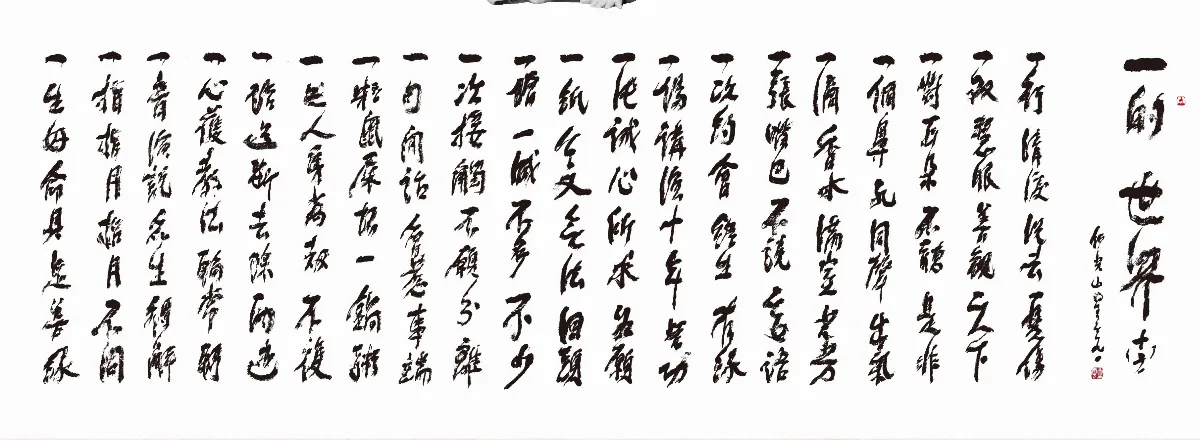 一的世界
佛光山星雲
一行清淚洗去憂傷
一雙慧眼善觀天下
一對耳朵不聽是非
一個鼻孔同聲出氣
一滴香水滿室芬芳
一張嘴巴不說妄語
一次約會終生有緣
一場講演十年苦功
一誠心所求如願
一紙公文無法回頭
一增一減不多不少
一次接觸不願分離
一句閒話會惹事端
一粒鼠屎一鍋粥
一失人身萬劫不復
一路去除
一心護教法輪常轉
一音演說眾生得解
一指指月指月不同
一生命具足善緣